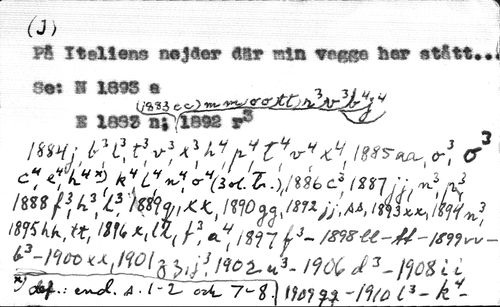 (J)
På Italiens nejder där min vagga har stått...
Se: N 1893 a
(1883 cc) m m, oo tt, r³ v³ b⁴ j⁴
E 1883 n; 1892 r³
1884 j, b³, l³, t³, v³, x³, h⁴, p⁴, t⁴, v⁴, x⁴, 1885 aa, o³, σ³
c⁴, e⁴, h⁴ x) k⁴, l⁴, n⁴, o⁴ (3 ol. tr.), 1886 c³, 1887 jj, n³, p³,
1888 f³, h³, l³, 1889 q, xx, 1890 gg, 1892 jj, ss, 1893 xx, 1894 n³,
1895 hh, tt, 1896 x, ll, f³, a⁴, 1897 f³ - 1898 ll - ff - 1899 vv -
b³ - 1900 xx, 1901 zz, j³, 1902 u³ - 1906 d³ - 1908 ii
x) def.: end. s. 1-2 och 7-8. 1909 gg - 1910 l³ - k⁴ -